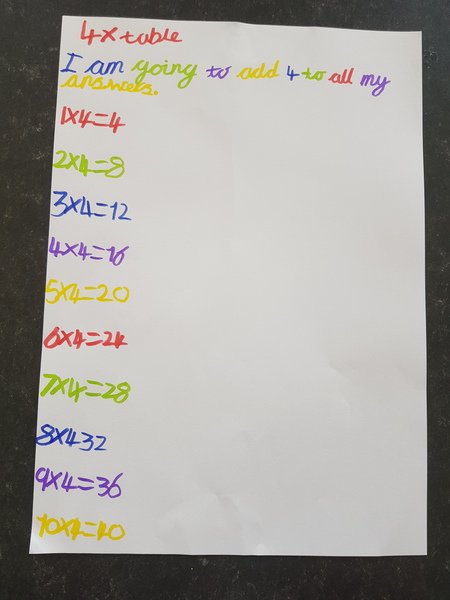 4x table
I am going to add 4 to all my
answers.
1x4=4
2x4=8
3x4=12
4x4=16
5x4=20
6x4=24
7x4=28
8x432
9x4=36
10x4=40